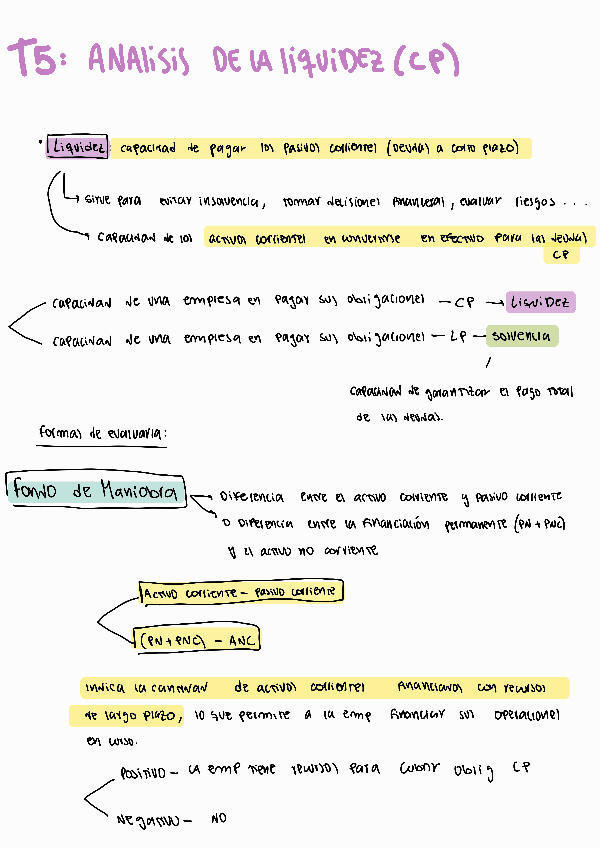 T5: ANALISIS DE LA LIQUIDEZ (CP)
Liquidez: capacidad de pagar los pasivos corrientes (deudas a corto plazo)
sirve para evitar insolvencia, tomar decisiones financieras, evaluar riesgos ...
capacidad de los activos corrientes en convertirse en efectivo para las deudas
CP
capacidad de una empresa en pagar sus obligaciones - CP → LIQUIDEZ
capacidad de una empresa en pagar sus obligaciones - LP - solvencia
capacidad de garantizar el pago total
de las deudas.
formas de evaluarla:
Fondo de Maniobra → Diferencia entre el activo corriente y pasivo corriente
o Diferencia entre la financiación permanente (PN + PNC)
y el activo no corriente
Activo corriente - pasivo corriente
(PN + PNC) - ANC
indica la cantidad de activos corrientes financiados con recursos
de largo plazo, lo que permite a la emp financiar sus operaciones
en curso.
positivo - la emp tiene recursos para cubrir oblig CP
Negativo - NO